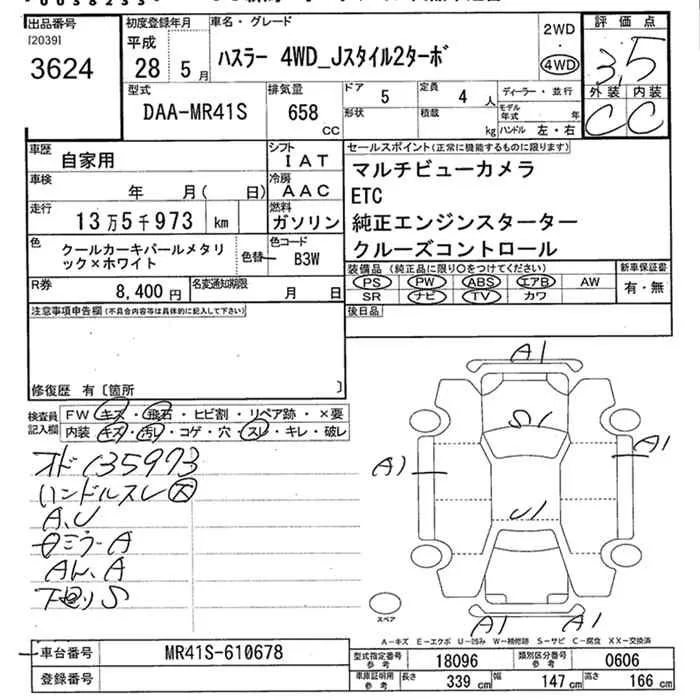 出品番号
[2039]
3624
初度登録年月
平成
28年 5月
車名・グレード
ハスラー 4WD_Jスタイル2ターボ
2WD
・
4WD
評価点
3.5
外装 内装
C C
型式
DAA-MR41S
排気量
658 CC
ドア 5
定員 4人
形状
積載 kg
ディーラー・並行
モデル年式 年
ハンドル 左・右
車歴
自家用
シフト
IAT
車検 年 月( 日)
冷房
AAC
走行 13万5千973 km
燃料
ガソリン
セールスポイント(正常に機能するものに限ります)
マルチビューカメラ
ETC
純正エンジンスターター
クルーズコントロール
色
クールカーキパールメタリ
ック×ホワイト
色替
色コード
B3W
R券 8,400円
名変通知期限 月 日
装備品 (純正品に限り○をつけてください)
PS PW ABS エアB AW
SR ナビ TV カワ
新車保証書
有・無
注意事項申告欄(不具合内容等は具体的に記入して下さい)
後日品
修復歴 有〔箇所 〕
検査員
記入欄
FW キズ・飛石・ヒビ割・リペア跡・×要
内装 キズ・汚レ・コゲ・穴・スレ・キレ・破レ
オド135973
ハンドルスレ大
A、U
A
A
下廻りS
A1
S1
A1
A1
U1
A1 A1
スペア
A-キズ E-エクボ U-凹み W-補修跡 S-サビ C-腐食 XX-交換済
車台番号 MR41S-610678
登録番号
型式指定番号
参考
18096
類別区分番号
参考
0606
車庫証明用
参考
長さ 339 cm 幅 147 cm 高さ 166 cm